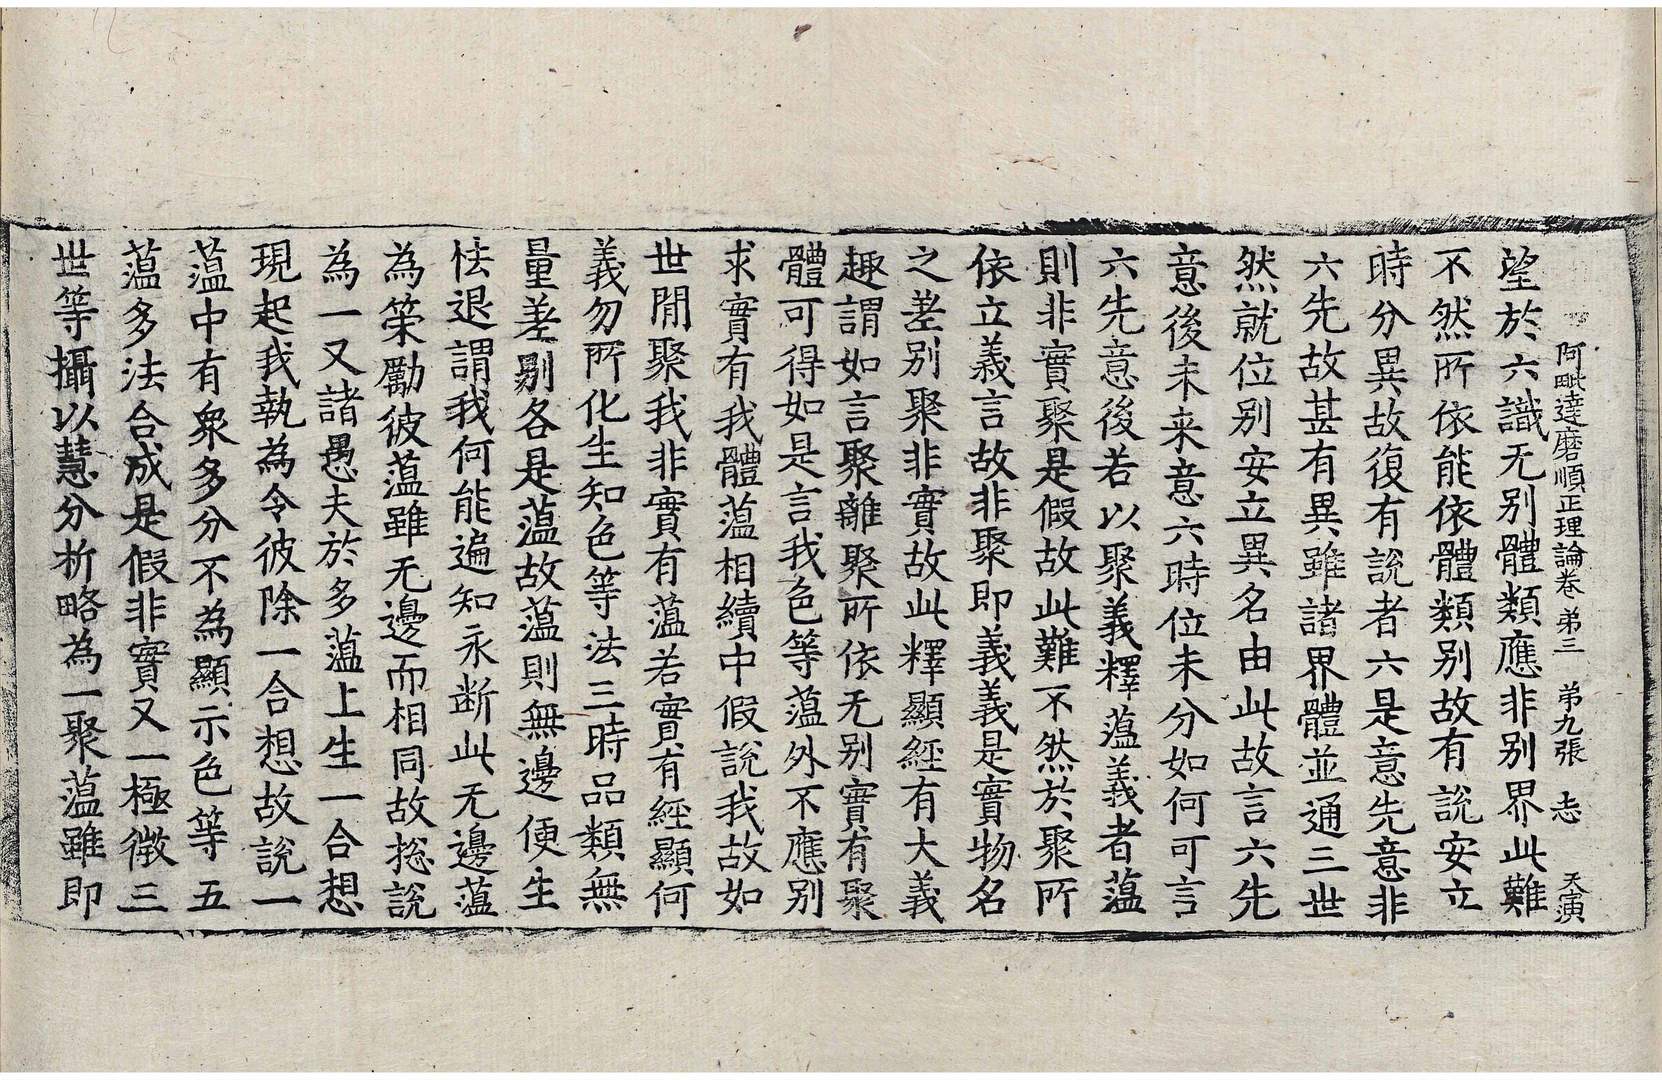 阿毗達磨順正理論卷苐三 苐九張 志 天演
望於六識无别體類應非别界此難
不然所依能依體類别故有說安立
時分異故復有說者六是意先意非
六先故甚有異雖諸界體並通三世
然就位别安立異名由此故言六先
意後未来意六時位未分如何可言
六先意後若以聚義釋薀義者薀
則非實聚是假故此難不然於聚所
依立義言故非聚即義義是實物名
之差别聚非實故此釋顯經有大義
趣謂如言聚離聚所依无别實有聚
體可得如是言我色等薀外不應别
求實有我體薀相續中假說我故如
世閒聚我非實有薀若實有經顯何
義勿所化生知色等法三時品類無
量差别各是薀故薀則無邊便生
怯退謂我何能遍知永断此无邊薀
為策勵彼薀雖无邊而相同故捴說
為一又諸愚夫於多薀上生一合想
現起我執為令彼除一合想故說一
薀中有衆多分不為顯示色等五
薀多法合成是假非實又一極微三
世等攝以慧分析略為一聚薀雖即